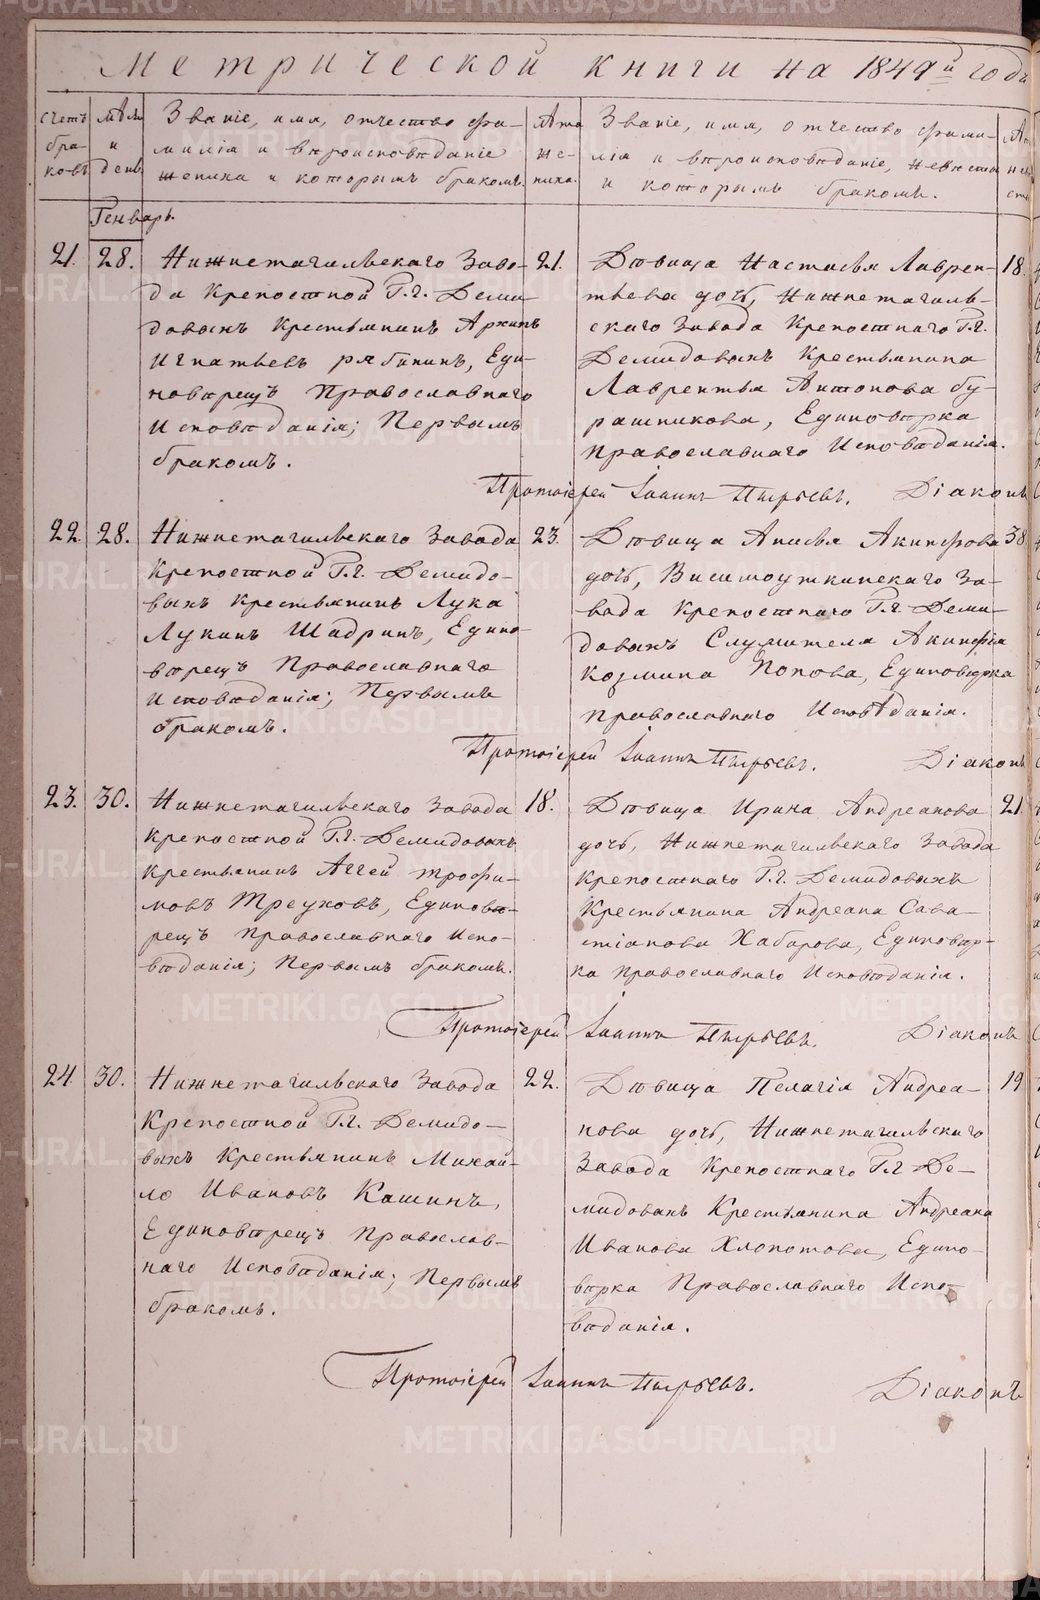 Метрической книги на 1849й годъ
счетъ браковъ
мѣсяцъ и день
Званіе, имя, отчество фа-
милія и вѣроисповѣданіе
жениха и которымъ бракомъ.
Лѣта
же-
ниха.
Званіе, имя, отчество фами-
лія и вѣроисповѣданіе, невѣсты
и которымъ бракомъ.
Генварь.
21. 28.
Нижнетагильскаго Заво-
да Крепостной Г.г. Деми-
довыхъ Крестьянинъ Архипъ
Игнатьевъ рябининъ, Еди-
новѣрецъ Православнаго
Исповѣданія; Первымъ
бракомъ.
21.
Дѣвица Настасья Лаврен-
тьева дочь, Нижнетагиль-
скаго Завода Крепостнаго Г.г.
Демидовыхъ Крестьянина
Лаврентья Антонова бу-
рашникова, Единовѣрка
Православнаго Исповѣданія.
18.
Протоіерей Іоаннъ Пырьевъ. Діаконъ
22. 28.
Нижнетагильскаго Завода
Крепостной Г.г. Демидо-
выхъ Крестьянинъ Лука
Лукинъ Шадринъ, Едино-
вѣрецъ Православнаго
Исповѣданія; Первымъ
бракомъ.
23.
Дѣвица Анисья Акинфова
дочь, Висимоуткинскаго За-
вода Крепостнаго Г.г. Деми-
довыхъ Служителя Акинфія
Козмина Попова, Единовѣрка
Православнаго Исповѣданія.
38
Протоіерей Іоаннъ Пырьевъ. Діаконъ
23. 30.
Нижнетагильскаго Завода
Крепостной Г.г. Демидовыхъ
Крестьянинъ Аггей трофи-
мовъ Треуховъ, Единовѣ-
рецъ Православнаго Испо-
вѣданія; Первымъ бракомъ.
18.
Дѣвица Ирина Андреанова
дочь, Нижнетагильскаго Завода
Крепостнаго Г.г. Демидовыхъ
Крестьянина Андреана Сава-
стіанова Хабарова, Единовѣр-
ка Православнаго Исповѣданія.
21
Протоіерей Іоаннъ Пырьевъ. Діаконъ
24 30.
Нижнетагильскаго Завода
Крепостной Г.г. Демидо-
выхъ Крестьянинъ Михай-
ло Ивановъ Кашинъ,
Единовѣрецъ Православ-
наго Исповѣданія; Первымъ
бракомъ.
22.
Дѣвица Пелагія Андреа-
нова дочь, Нижнетагильскаго
Завода Крепостнаго Г.г Де-
мидовыхъ Крестьянина Андреана
Иванова Хлопотова, Едино-
вѣрка Православнаго Испо-
вѣданія.
19
Протоіерей Іоаннъ Пырьевъ. Діаконъ
METRIKI.GASO-URAL.RU